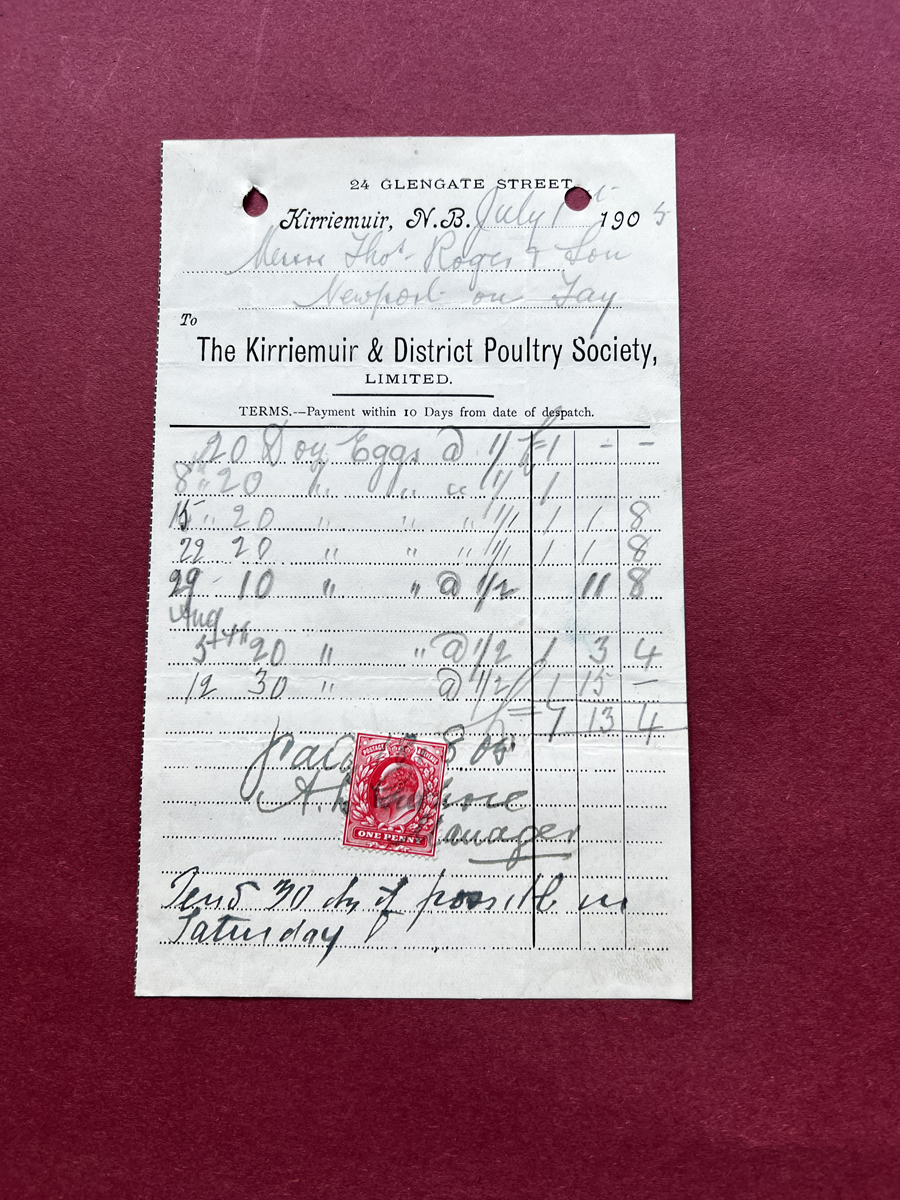 24 GLENGATE STREET,
Kirriemuir, N.B. July 1st 1905
Messrs Thos. Roger & Son
Newport on Tay
To
The Kirriemuir & District Poultry Society,
LIMITED.
TERMS.—Payment within 10 Days from date of despatch.
20 Doz Eggs @ 1/ £ 1 - -
8 " 20 " " " 1/ 1
15 " 20 " " " 1/1 1 1 8
22 20 " " " 1/1 1 1 8
29 10 " " @ 1/2 11 8
Aug
5th 20 " " @ 1/2 1 3 4
12 30 " @ 1/2 1 15 -
£= 7 13 4
8 05
POSTAGE REVENUE
A.
ONE PENNY
Manager
Send 30 dz if possible on
Saturday